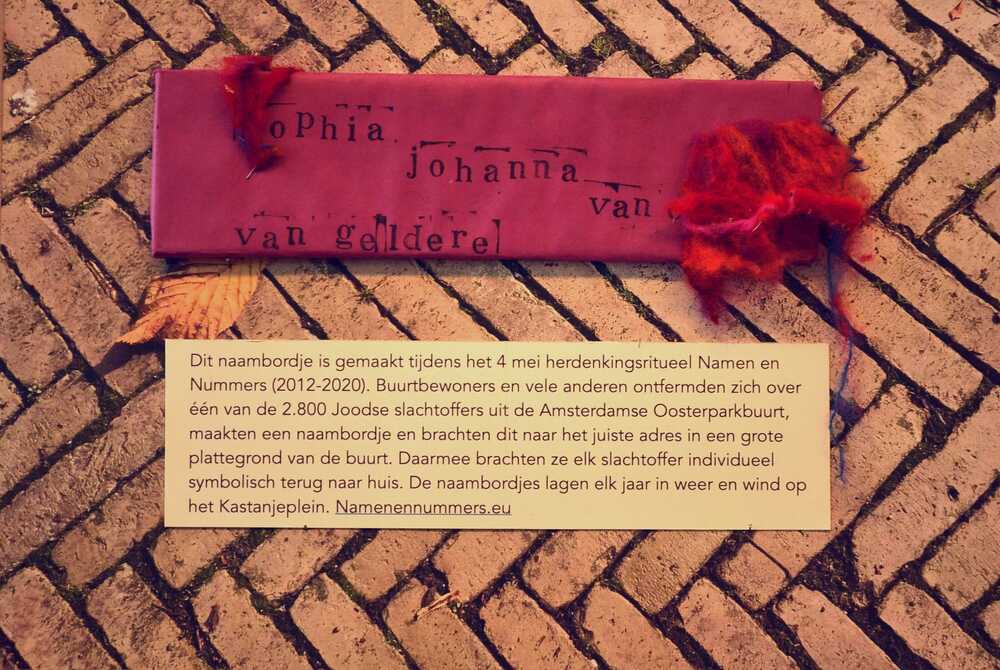 ophia
johanna
van
van geldere
Dit naambordje is gemaakt tijdens het 4 mei herdenkingsritueel Namen en
Nummers (2012-2020). Buurtbewoners en vele anderen ontfermden zich over
één van de 2.800 Joodse slachtoffers uit de Amsterdamse Oosterparkbuurt,
maakten een naambordje en brachten dit naar het juiste adres in een grote
plattegrond van de buurt. Daarmee brachten ze elk slachtoffer individueel
symbolisch terug naar huis. De naambordjes lagen elk jaar in weer en wind op
het Kastanjeplein. Namenennummers.eu